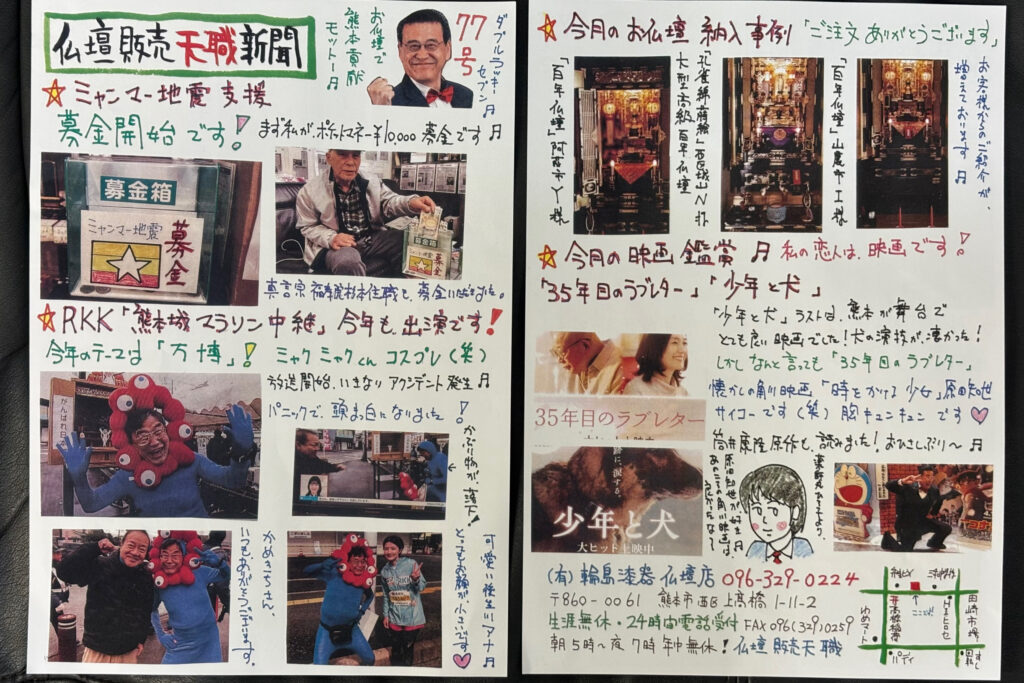 仏壇販売天職新聞
77号
ダブルラッキーセブン♬
お仏壇で
熊本貢献
モットー♬
☆ミャンマー地震支援
募金開始です！
まず私が、ポケットマネー¥10,000募金です♬
募金箱
ミャンマー地震
募金
募金箱
募金
真言宗
住職も、募金いただきました。
☆RKK「熊本城マラソン中継」今年も、出演です！
今年のテーマは「万博」！
ミャクミャクくんコスプレ（笑）
放送開始、いきなりアクシデント発生♬
パニックで、頭ま白になりました！
かぶり物が、落下！
がんばれ日
かめきちさん、
いつもありがとうございます。
可愛い後生アナ♬
とってもお顔が小さいです♡
☆今月のお仏壇納入事例「ご注文ありがとうございます」
お客様からのご紹介が、
増えております♬
「百年仏壇」山鹿市 I様
大型高級百年仏壇
「百年仏壇」阿蘇市 Y様
☆今月の映画鑑賞♬私の恋人は、映画です！
「35年目のラブレター」「少年と犬」
「少年と犬」ラストは、熊本が舞台で
とても良い映画でした！犬の演技が、凄かった！
しかしなんと言っても「35年目のラブレター」
懐かしの角川映画「時をかける少女」原田知世
サイコーです（笑）胸キュンキュンです♡
筒井康隆原作も、読みました！おひさしぶり〜♬
35年目のラブレター
少年と犬
大ヒット上映中
薬師丸ひろ子より、
原田知世が好き♬
あのころの角川映画は、
（有）輪島漆器仏壇店 096-329-0224
〒860-0061 熊本市西区上高橋1-11-2
生涯無休・24時間電話受付 FAX096(329)0259
朝5時〜夜7時年中無休！仏壇販売天職
ここです
田崎市場
ゆめマート